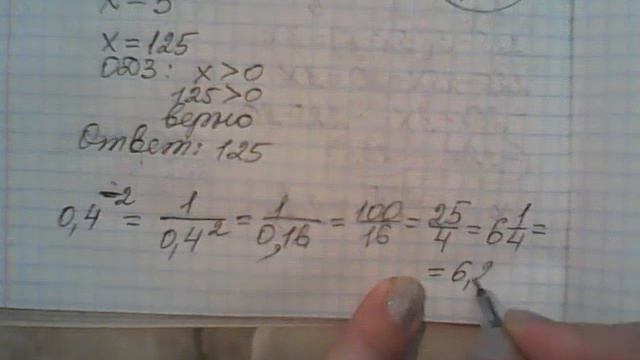 x = 5
x = 125
ОДЗ: x > 0
125 > 0
верно
Ответ: 125
0,4^-2 = 1/0,4^2 = 1/0,16 = 100/16 = 25/4 = 6 1/4 =
= 6,2